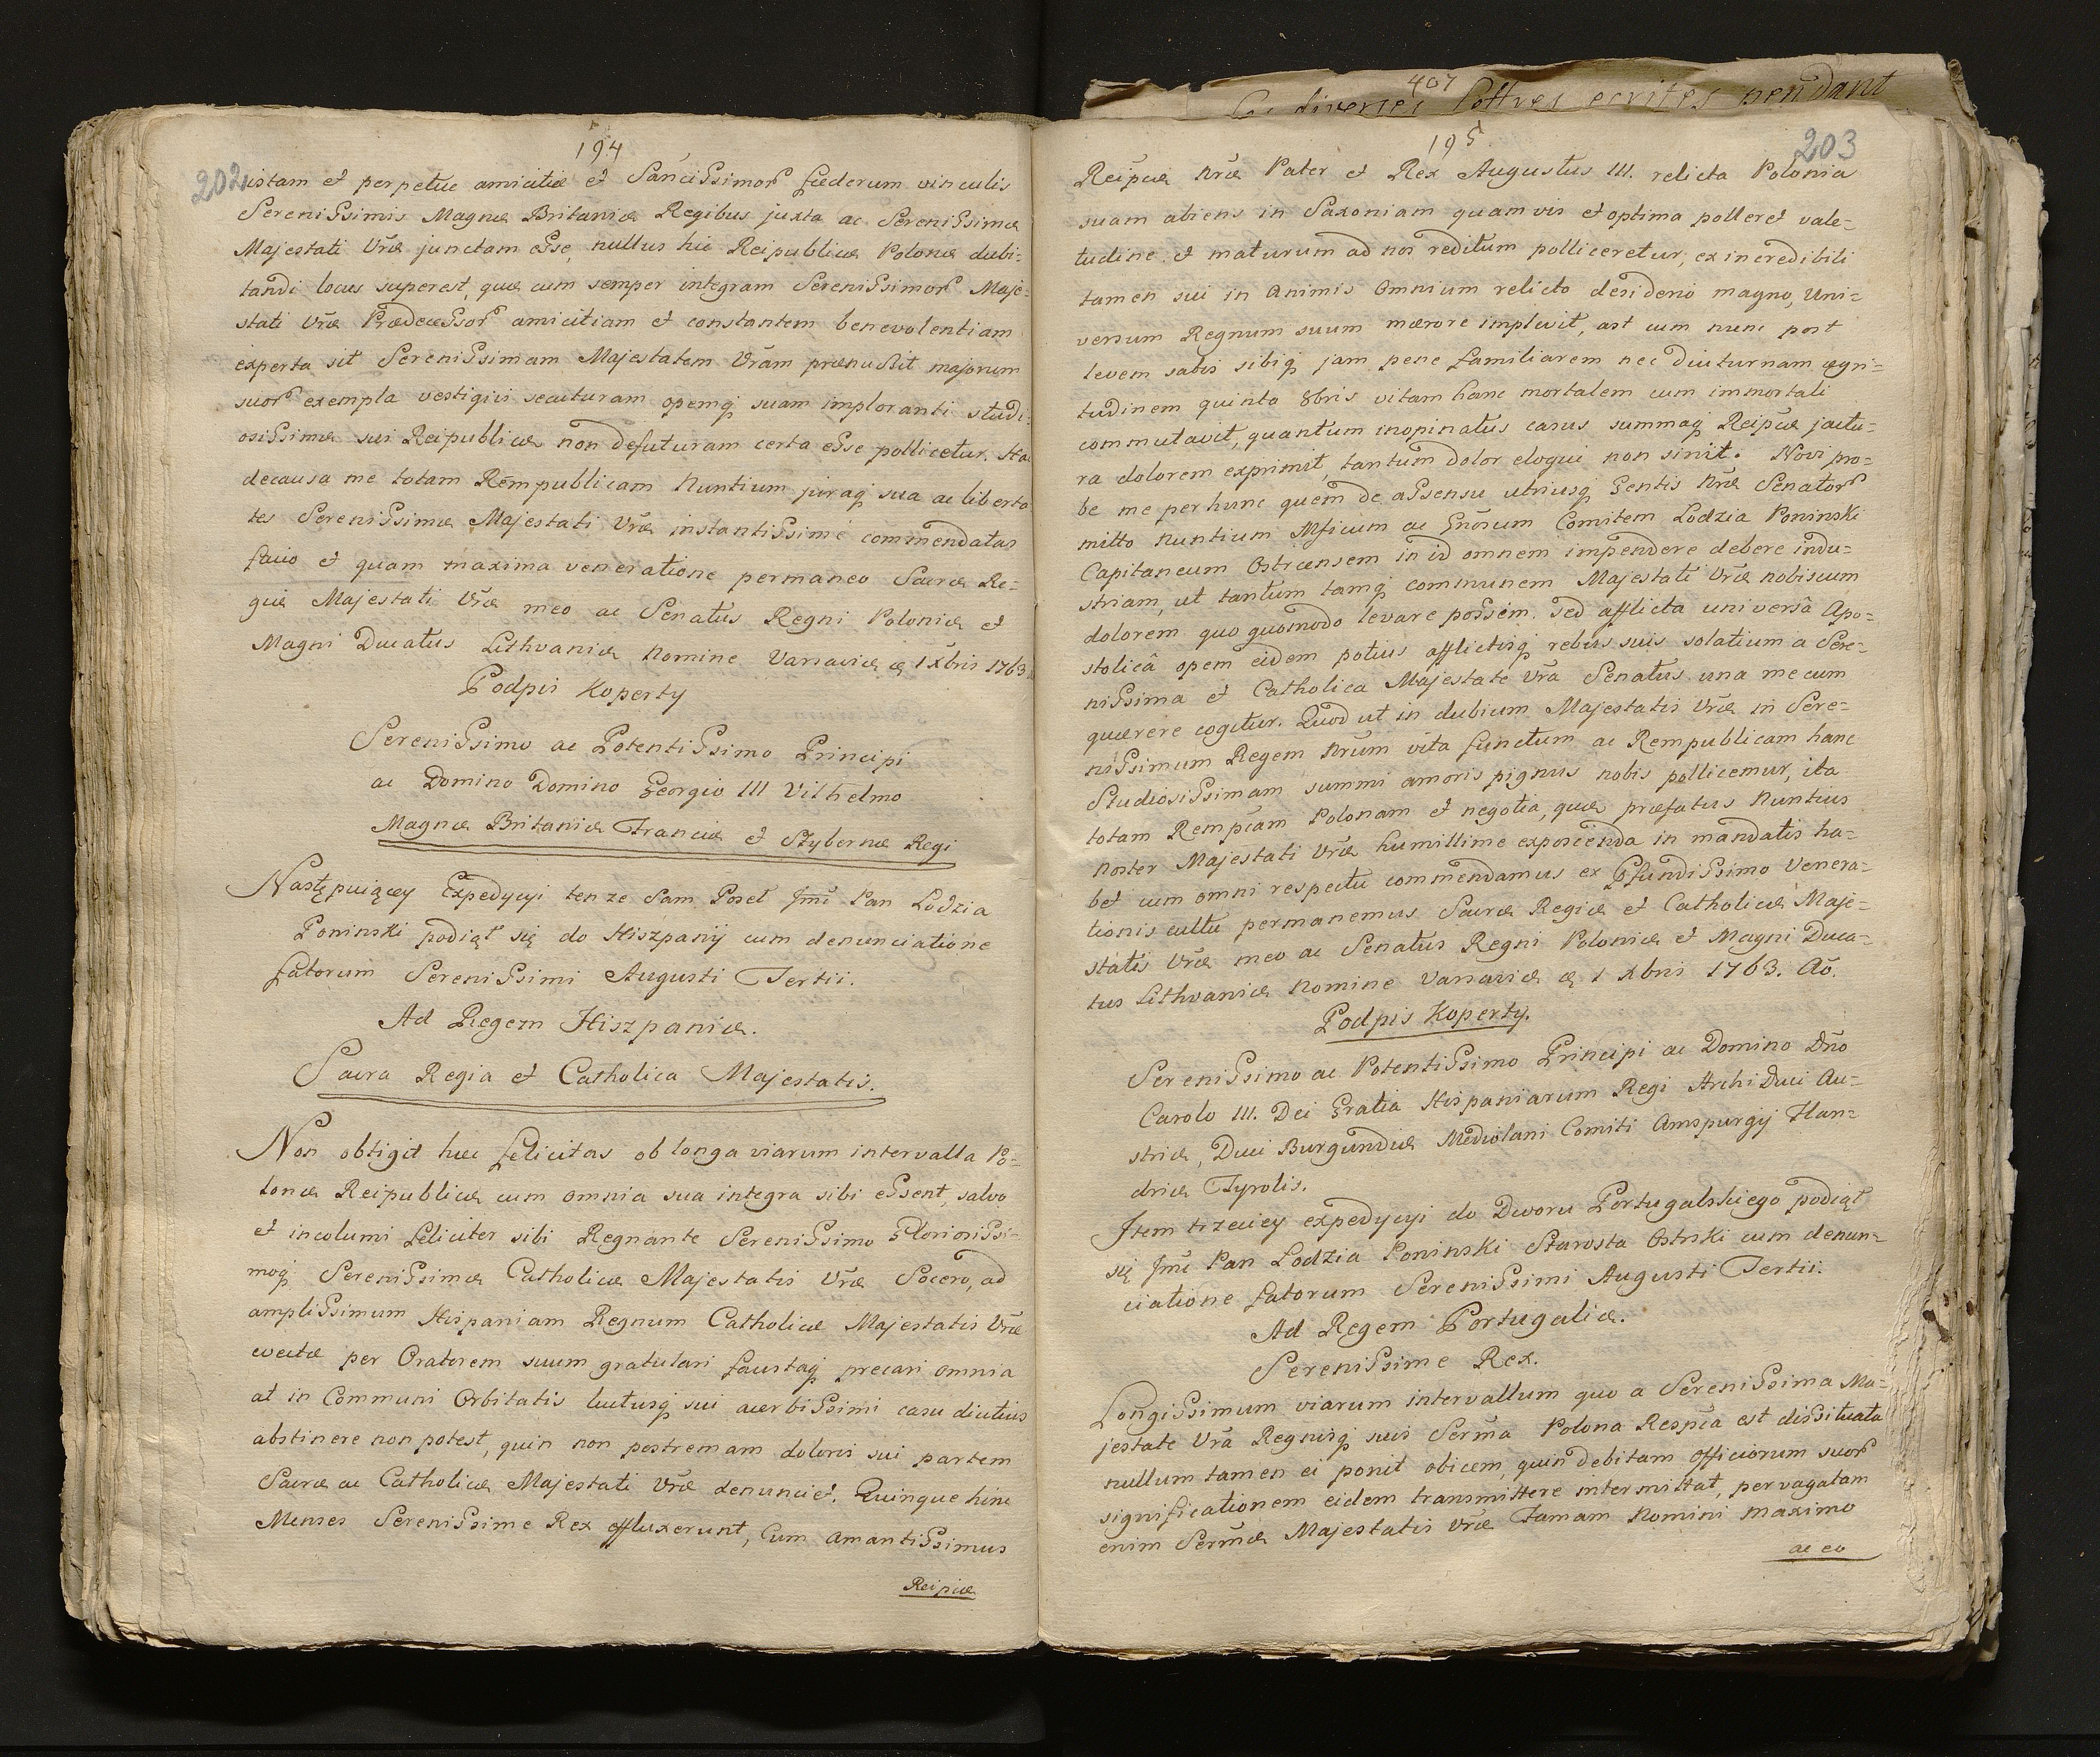 194
202
istam et perpetuæ amicitiæ et Sanctissimor fœderum vinculis
Serenissimis Magnæ Britaniæ Regibus juxta ac Serenissimæ
Majestati Vræ junctam esse, nullus hic Reipublicæ Polonæ dubi-
tandi locus superest, quæ cum semper integram Serenissimor Maje-
stati Vræ Prædecessor amicitiam et constantem benevolentiam
experta sit Serenissimam Majestatem Vram prænuskit majorum
suor exempla vestigiis secuturam opemq suam imploranti studi-
osissimæ sui Reipublicæ non defuturam certa esse pollicetur. Hac
decausa me totam Rempublicam Nuntium juraq sua ac liberta
tes Serenissimæ Majestati Vræ instantissimè commendatas
facio et quam maxima veneratione permaneo Sacræ Re-
giæ Majestati Vræ meo ac Senatus Regni Poloniæ et
Magni Ducatus Lithvaniæ Nomine Varsaviæ d 1 Xbris 1763
Podpis Koperty
Serenissimo ac Potentissimo Principi
ac Domino Domino Georgio III Vilhelmo
Magnæ Britaniæ Franciæ et Hyberniæ Regi
Następuiącey Expedycyi ten ze Sam Poseł Jmć Pan Lodzia
Poninski podiął się do Hiszpanij cum denunciatione
fatorum Serenissimi Augusti Tertii.
Ad Regem Hiszpaniæ.
Sacra Regia et Catholica Majestatis.
Non obtigit hæc felicitas ob longa viarum intervalla Po-
lonæ Reipublicæ cum omnia sua integra sibi essent, salvo
et incolumi feliciter sibi Regnante Serenissimo Gloriosissi-
moq Serenissimæ Catholicæ Majestatis Vræ Socero, ad
amplissimum Hispaniam Regnum Catholicæ Majestatis Vræ
evectæ per Oratorem suum gratulari faustaq precari omnia
at in Communi Orbitatis luctusq sui acerbissimi casu diutius
abstinere non potest, quin non postremam doloris sui partem
Sacræ ac Catholicæ Majestati Vræ denunciet. Quinque hinc
Menses Serenissime Rex effluxerunt, Cum Amantissimus
Reipcæ
407
diverses lettres ecrites pendant
195
203
Reipcæ Nræ Pater et Rex Augustus III. relicta Polonia
suam abiens in Saxoniam quamvis et optima polleret vale-
tudine et maturum ad nos reditum polliceretur, ex incredibili
tamen sui in Animis Omnium relicto desiderio magno, Uni-
versum Regnum suum mærore implevit, ast cum nunc post
levem satis sibiq jam pene familiarem nec diuturnam ægri-
tudinem quinto 8bris vitam hanc mortalem cum immortali
commutavit, quantum inopinatus casus summaq Reipcæ jactu-
ra dolorem exprimit, tantum dolor eloqui non sinit. Novi pro-
be me per hunc quem de assensu utriusq Gentis Nræ Senator
mitto Nuntium Mficum ac Gnosum Comitem Lodzia Poninski
Capitaneum Ostrcensem in id omnem impendere debere indu-
striam, ut tantum tamq communem Majestati Vræ nobiscum
dolorem quo quomodo levare possem. Sed afflicta universâ Apo-
stolicâ opem eidem potius afflictisq rebus suis solatium a Sere-
nissima et Catholica Majestate Vra Senatus una mecum
quærere cogitur. Quod ut in dubium Majestatis Vræ in Sere-
nissimum Regem Nrum vita functum ac Rempublicam hanc
Studiosissimam summi amoris pignus nobis pollicemur, ita
totam Rempcam Polonam et negotia, quæ præfatus Nuntius
noster Majestati Vræ humillime exposcenda in mandatis ha-
bet cum omni respectu commendamus ex Pfundissimo Venera-
tionis cultu permanemus Sacræ Regiæ et Catholicæ Maje-
statis Vræ meo ac Senatus Regni Poloniæ et Magni Duca-
tus Lithvaniæ Nomine Varsaviæ d 1 Xbris 1763. Ao.
Podpis Koperty.
Serenissimo ac Potentissimo Principi ac Domino Dño
Carolo III. Dei Gratia Hispaniarum Regi Archi Duci Au-
striæ, Duci Burgundiæ Mediolani Comiti Amspurgij Flan-
driæ Tyrolis.
Item trzeciey expedycyi do Dworu Portugalskiego podiął
się Jmć Pan Lodzia Poninski Starosta Ostrski cum denun-
ciatione fatorum Serenissimi Augusti Tertii.
Ad Regem Portugaliæ.
Serenissime Rex.
Longissimum viarum intervallum quo a Serenissima Ma-
jestate Vra Regnisq suis Serma Polona Respca est dissituata
nullum tamen ei ponit obicem, quin debitam officiorum suor
significationem eidem transmittere intermittat, pervagatam
enim Sermæ Majestatis Vræ Famam Nomini maximo
ac eo